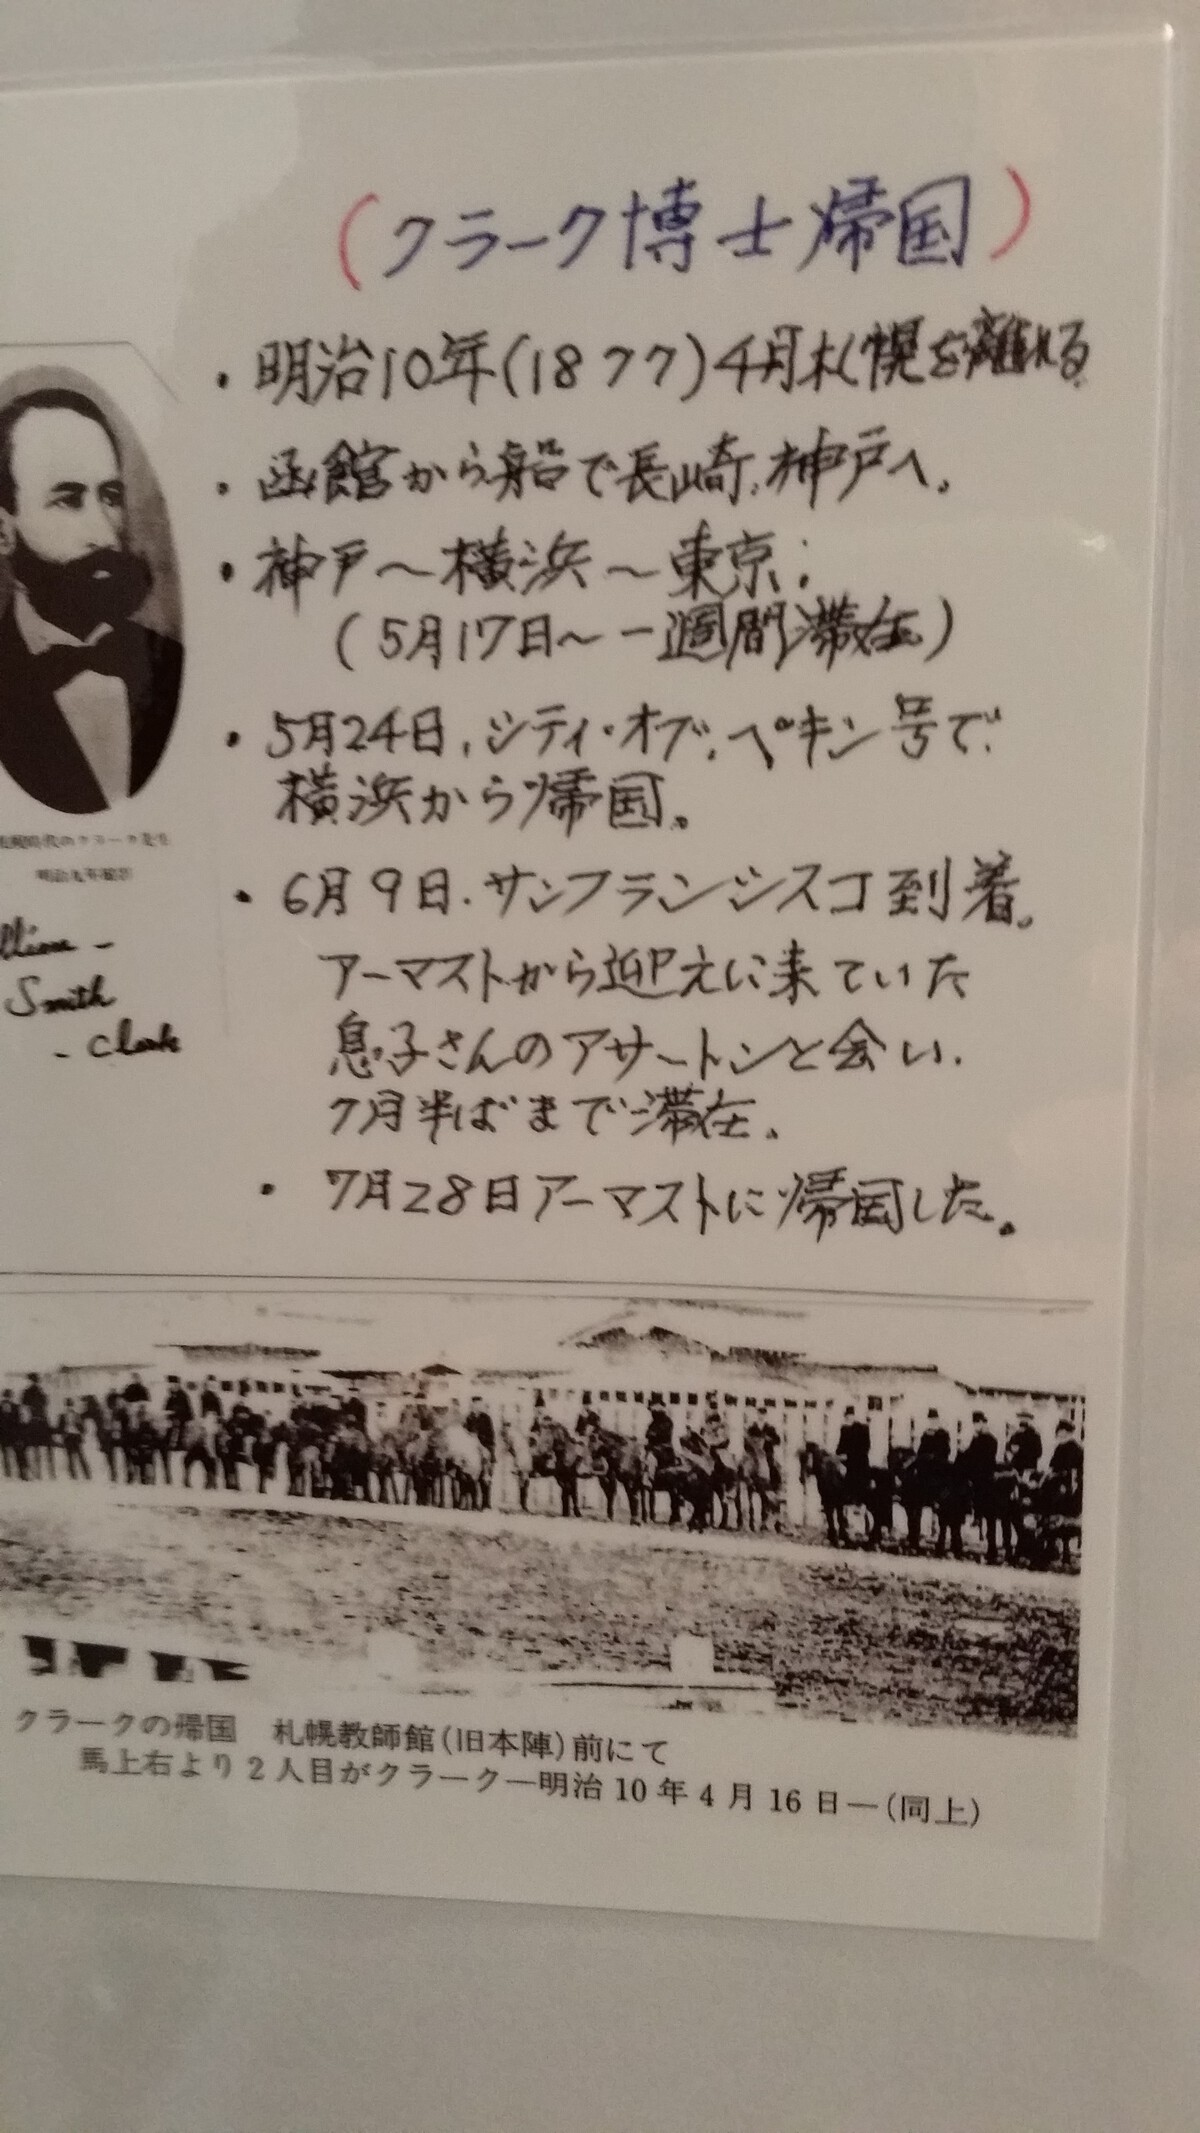 (クラーク博士帰国)
・明治10年(1877)4月札幌を離れる
・函館から船で長崎、神戸へ。
・神戸〜横浜〜東京:
(5月17日〜一週間滞在)
・5月24日、シティ・オブ・ペキン号で
横浜から帰国。
・6月9日、サンフランシスコ到着。
アーマストから迎えに来ていた
息子さんのアサートンと会い、
7月半ばまで滞在。
・7月28日アーマストに帰国した。
時代のクラーク先生
明治九年撮影
Smith
- Clark
クラークの帰国 札幌教師館(旧本陣)前にて
馬上右より2人目がクラーク—明治10年4月16日—(同上)